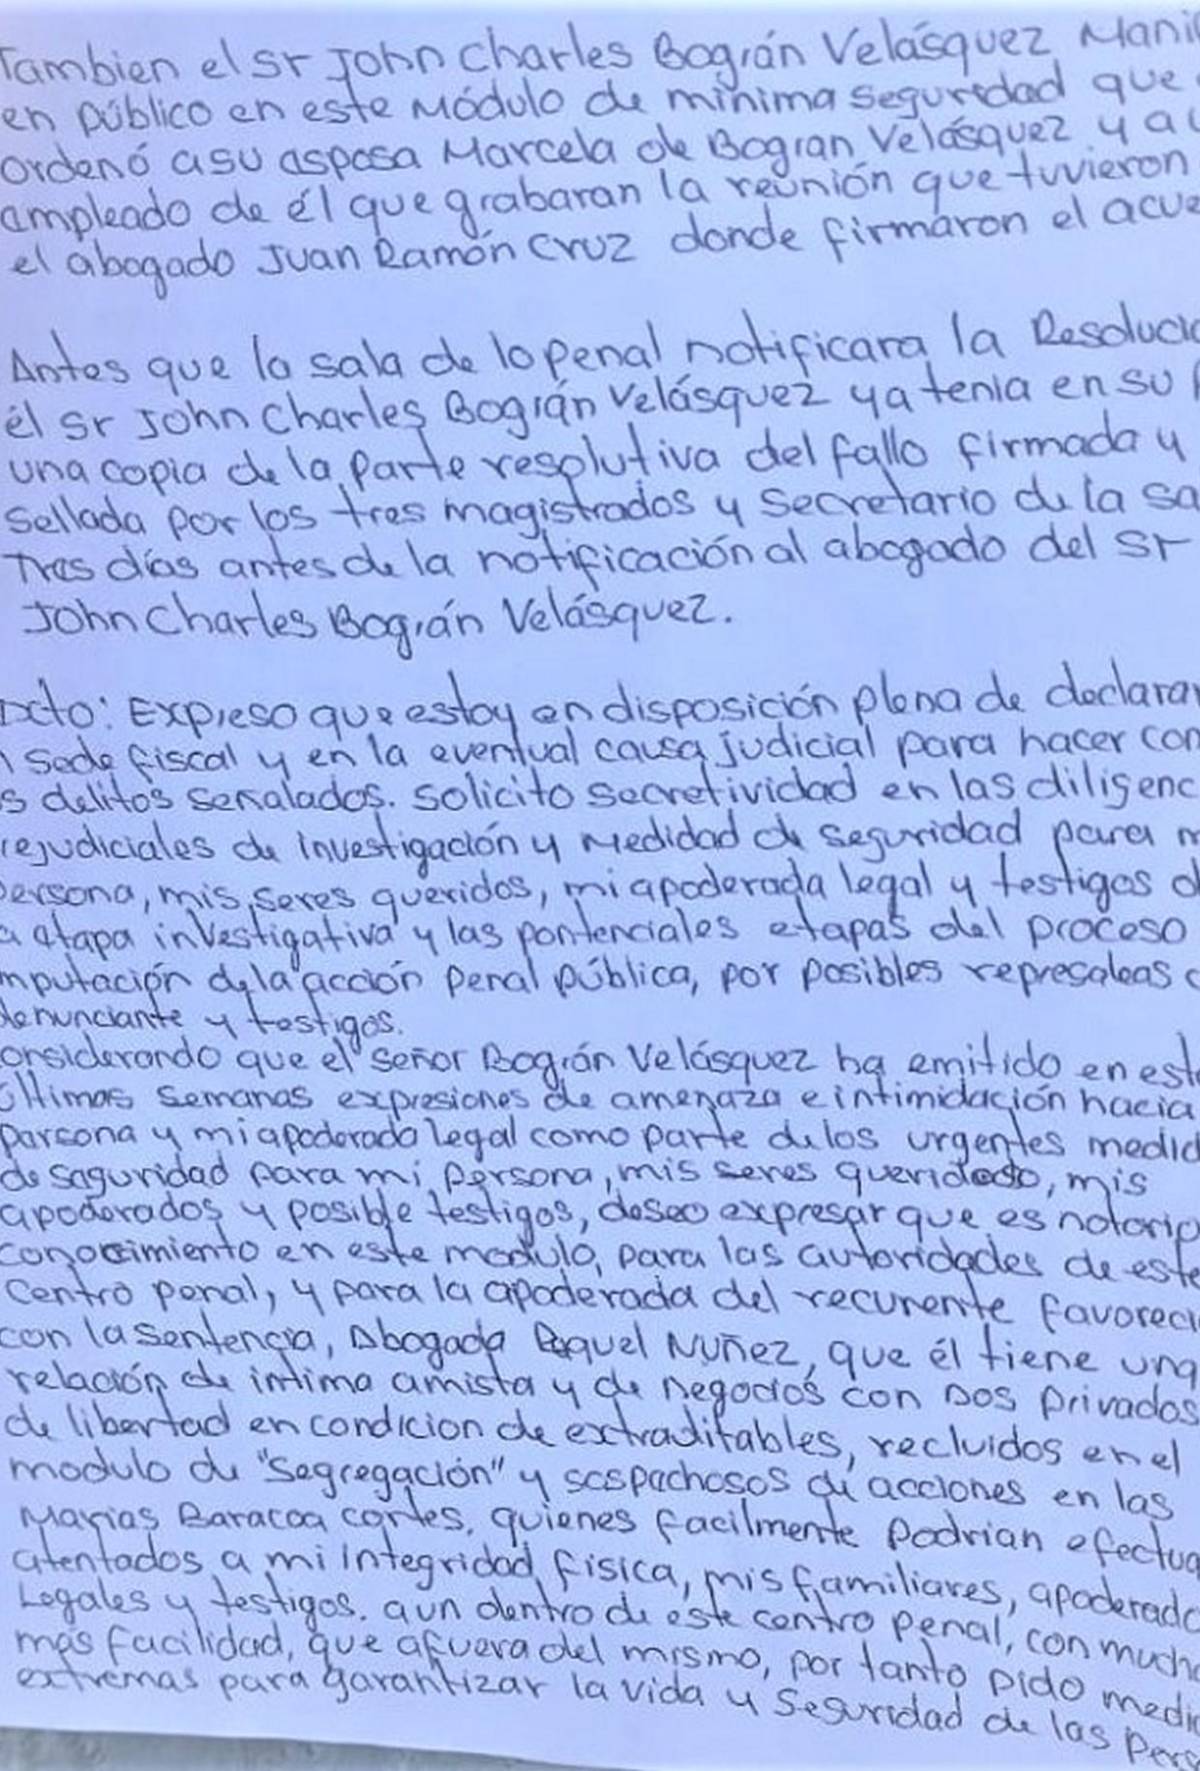 Tambien el sr John Charles Bográn Velásquez Mani
en público en este Módulo de minima seguridad que
ordenó a su asposa Marcela de Bogran Velásquez y a
ampleado de él que grabaran la reunión que tuvieron
el abogado Juan Ramón Cruz donde firmaron el acue
Antes que la sala de lo penal notificara la Resoluci
él Sr John Charles Bográn Velásquez ya tenia en su
una copia de la parte resolutiva del fallo firmada y
sellada por los tres magistrados y secretario de la sa
Tres días antes de la notificación al abogado del Sr
John Charles Bográn Velásquez.
xto: Expreso que estoy en disposición plena de declarar
sede fiscal y en la eventual causa judicial para hacer con
s delitos señalados. Solicito secretividad en las diligenc
rejudiciales de investigación y medidad de seguridad para m
persona, mis seres queridos, mi apoderada legal y testigos d
a etapa investigativa y las pontenciales etapas del proceso
mputación de la acción penal pública, por posibles represaleas
denunciante y testigos.
onsiderando que el señor Bográn Velásquez ha emitido en est
últimas semanas expresiones de amenaza e intimidación hacia
parsona y mi apoderada legal como parte de los urgentes medid
de saguridad para mi persona, mis seres querido, mis
apoderados y posible testigos, deseo expresar que es notorio
conocimiento en este modulo, para las autoridades de este
Centro penal, y para la apoderada del recurente favoreci
con la sentencia, Abogada Raquel Nuñez, que él tiene una
relación de intima amista y de negocios con Dos privados
de libertad en condicion de extraditables, recluidos en el
modulo de "Segregación" y sospachosos de acciones en las
Marias Baracoa cortes, quienes facilmente podrian efectua
atentados a mi integridad física, mis familiares, apoderado
Legales y testigos. aun dentro de este centro penal, con mucha
más facilidad, que afuera del mismo, por tanto pido medid
extremas para garantizar la vida y Seguridad de las pers